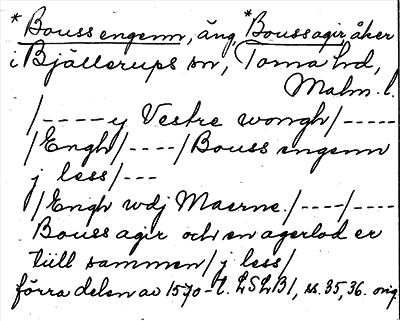 *Boussengenn, äng, *Boussagir åker
i Bjällerups sn, Torna hd,
Malm. l.
/----y Vestre wongh/-----
/Engh/----/Boussengenn
j less/---
/Engh wdj Maerne/----/----
Boussagir och en agerlod er
tiill sammen/j less/
förra delen av 1570-t. LSLB1, ss. 35, 36. orig.